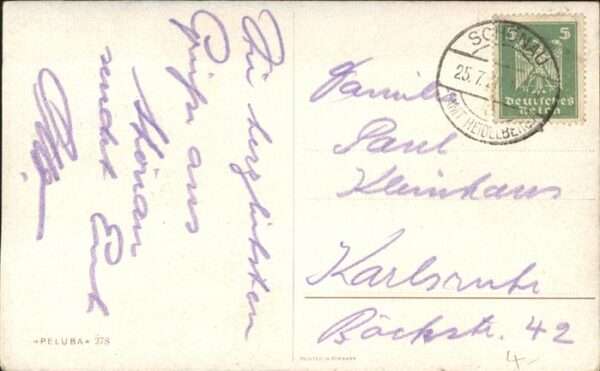 Die herzlichsten
Grüße aus
Schönau
sendet Euch
SCHÖNAU
25.7.2
(AMT HEIDELBERG)
5 5
Deutsches
Reich
Familie
Paul
Kleinhans
Karlsruhe
Böckstr. 42
*PELUBA* 378
4-